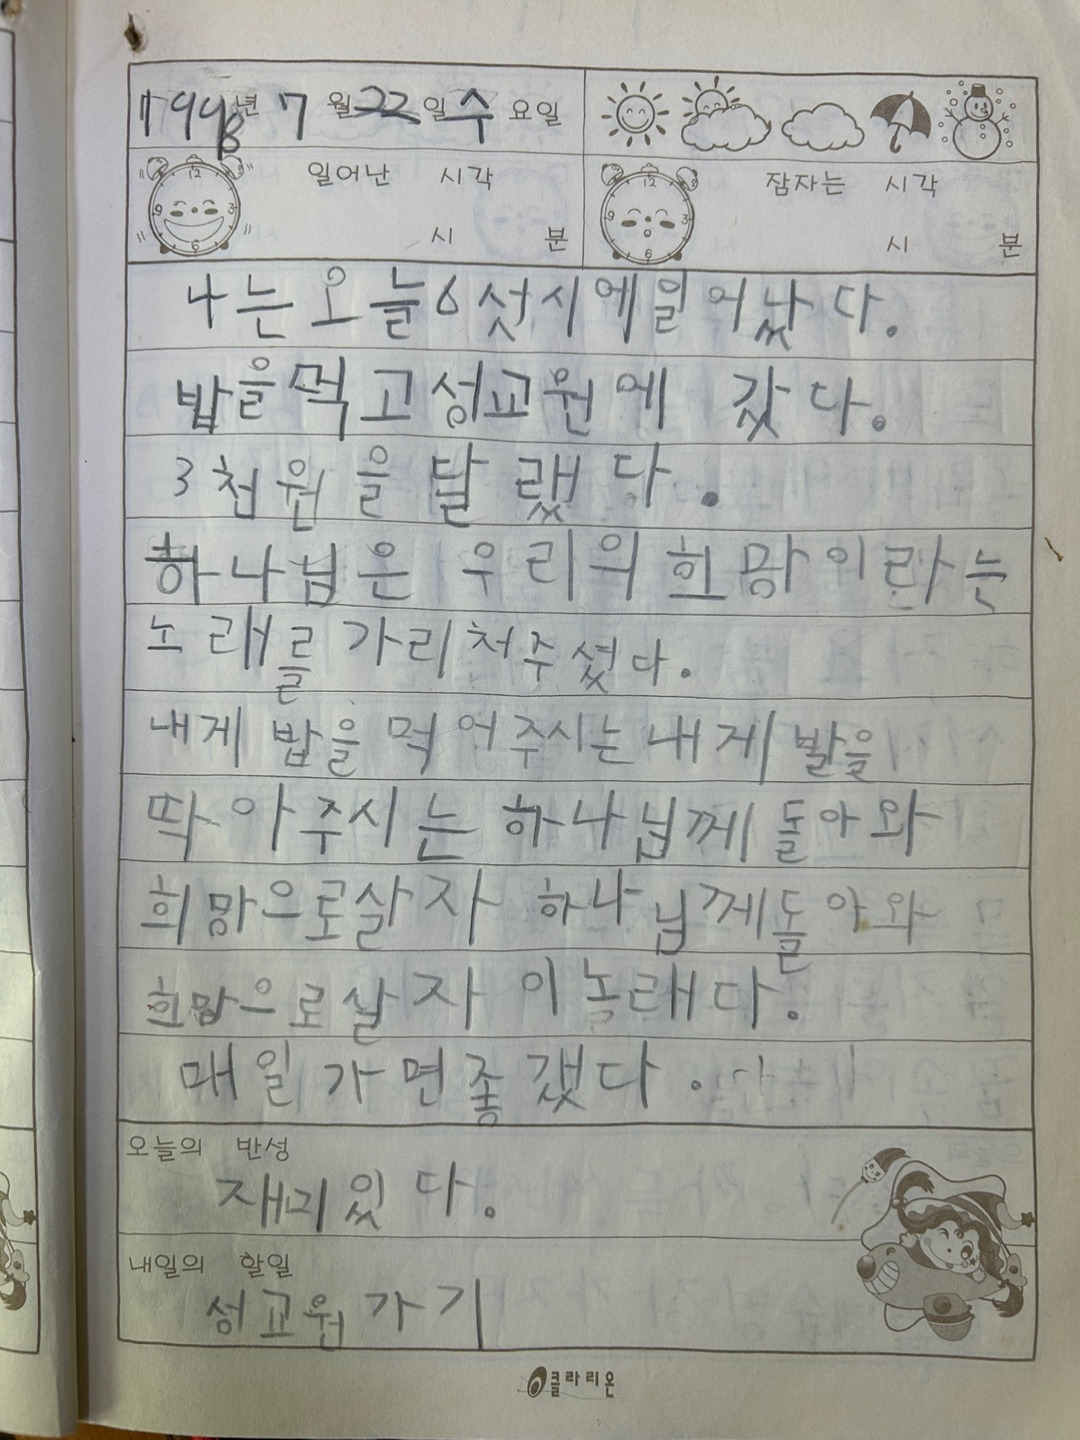 1998년 7월 22일 수요일
일어난 시각
잠자는 시각
시 분
시 분
나는 오늘 6섯시에 일어났다.
밥을 먹고 성교원에 갔다.
3천원을 달랬다.
하나님은 우리의 희망이라는
노래를 가리처주셨다.
내게 밥을 먹여주시는 내게 발을
딱아주시는 하나님께 돌아와
희망으로살자 하나님께돌아와
희망으로살자 이노래다.
매일 가면좋갰다.
오늘의 반성
재미있다.
내일의 할일
성교원가기
클라리온